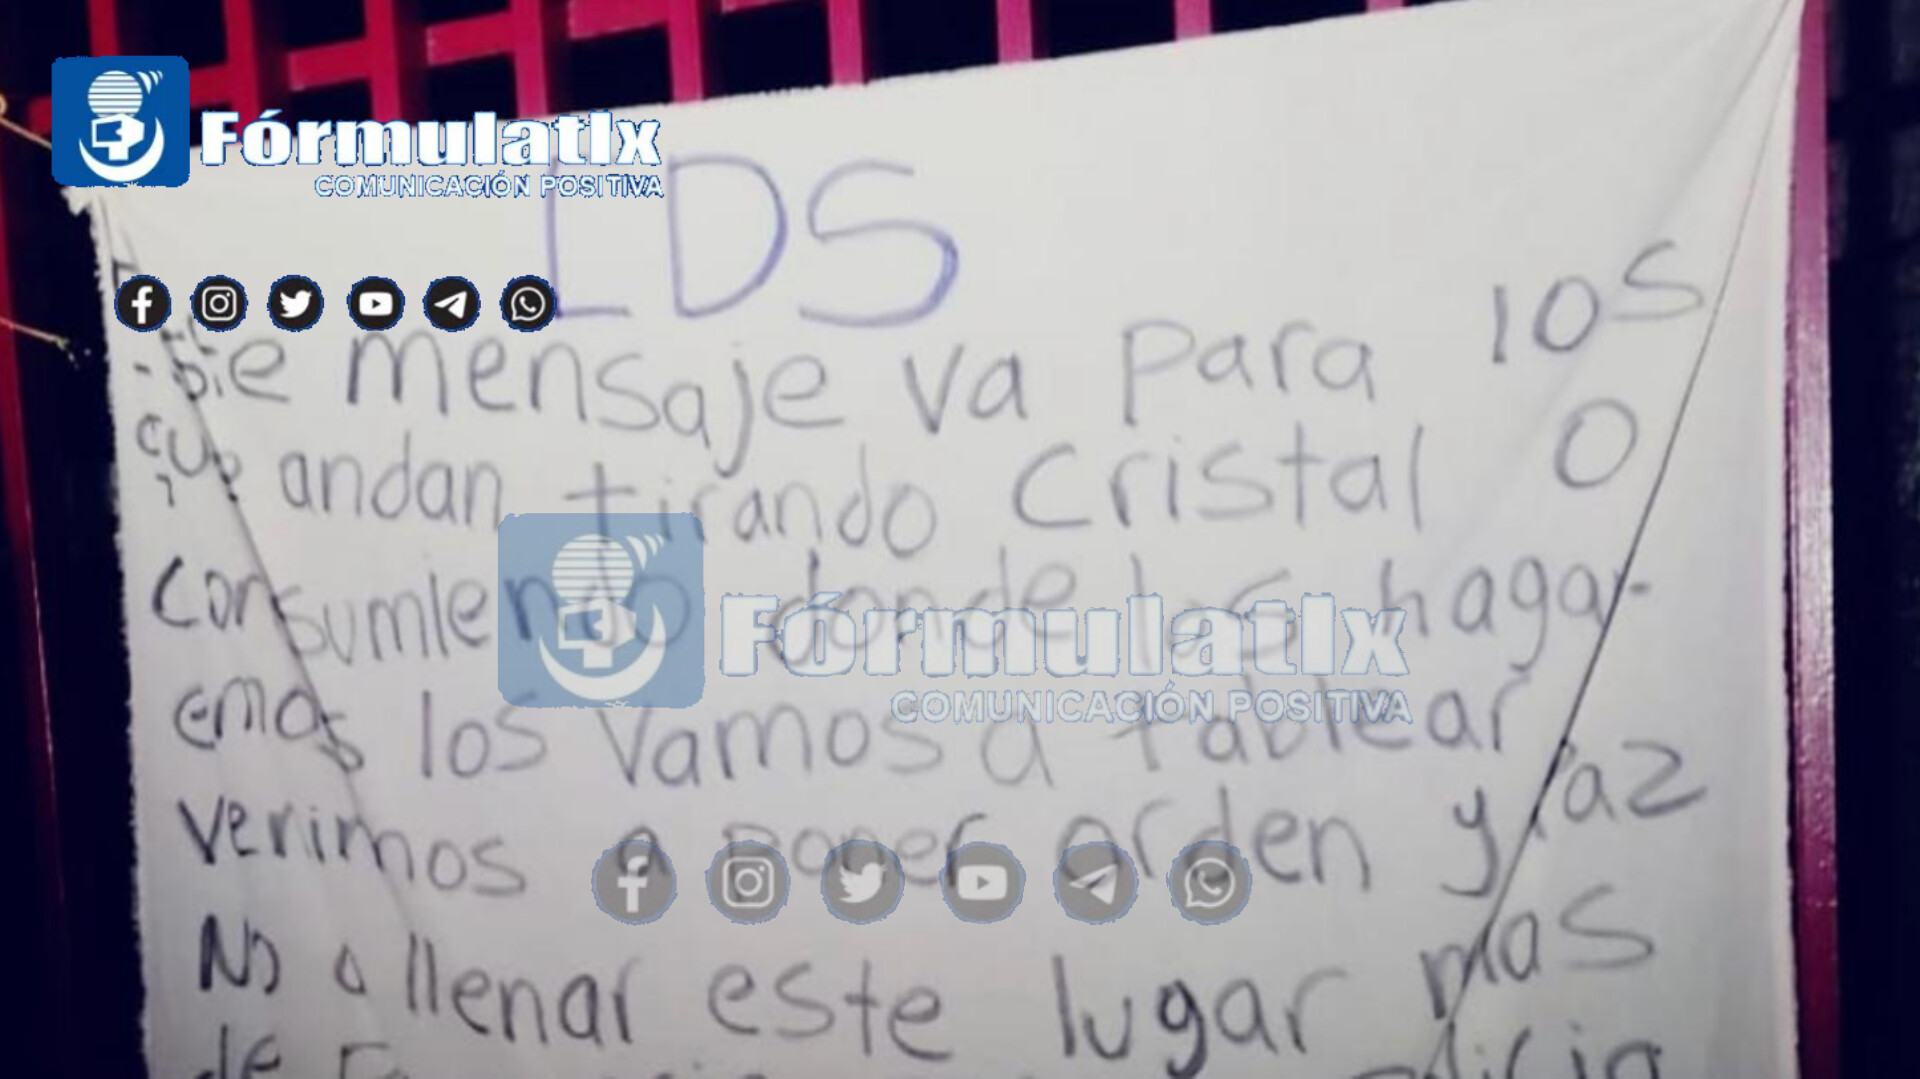 FórmulatIx
COMUNICACIÓN POSITIVA
LDS
mensaje va para los
que andan tirando Cristal o
Consumiendo donde los haga-
emos los Vamos a tablear
verimos a poner orden y Paz
No a llenar este lugar mas
de
FórmulatIx
COMUNICACIÓN POSITIVA